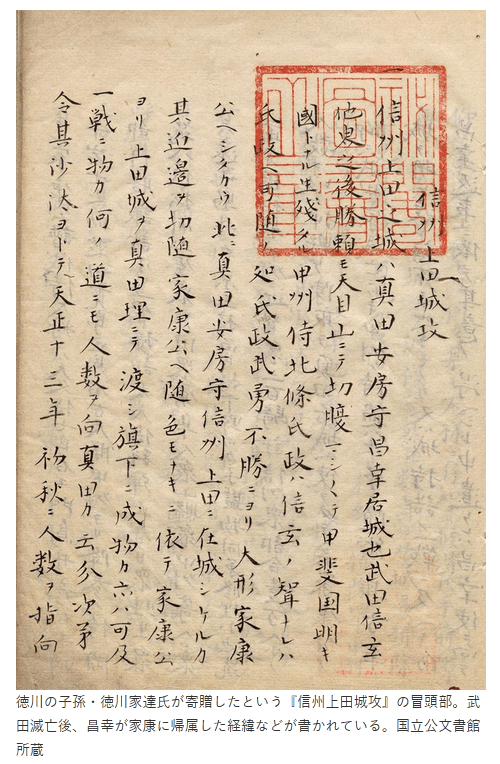 信州上田城攻
一信州上田之城ハ真田安房守昌幸居城也武田信玄
他界之後勝頼モ天目山ニテ切腹シ甲斐国明キ
國トナル生残タル甲州侍北條氏政ハ信玄ノ聟ナレハ
氏政ヘ可随ノ処氏政武勇不勝ニヨリ大形家康
公ヘシタカウ此ニ真田安房守信州上田ニ在城シケルカ
其近邊ヲ切随家康公ヘ随色モナキニ依テ家康公
ヨリ上田城ヲ真田理ニテ渡シ旗下ニ成物カ六ハ可及
一戦ニ物カ何ノ道ニモ人数ヲ向真田カ云分次第
令其沙汰ヨトテ天正十三年初秋ニ人数ヲ指向
徳川の子孫・徳川家達氏が寄贈したという『信州上田城攻』の冒頭部。武
田滅亡後、昌幸が家康に帰属した経緯などが書かれている。国立公文書館
所蔵